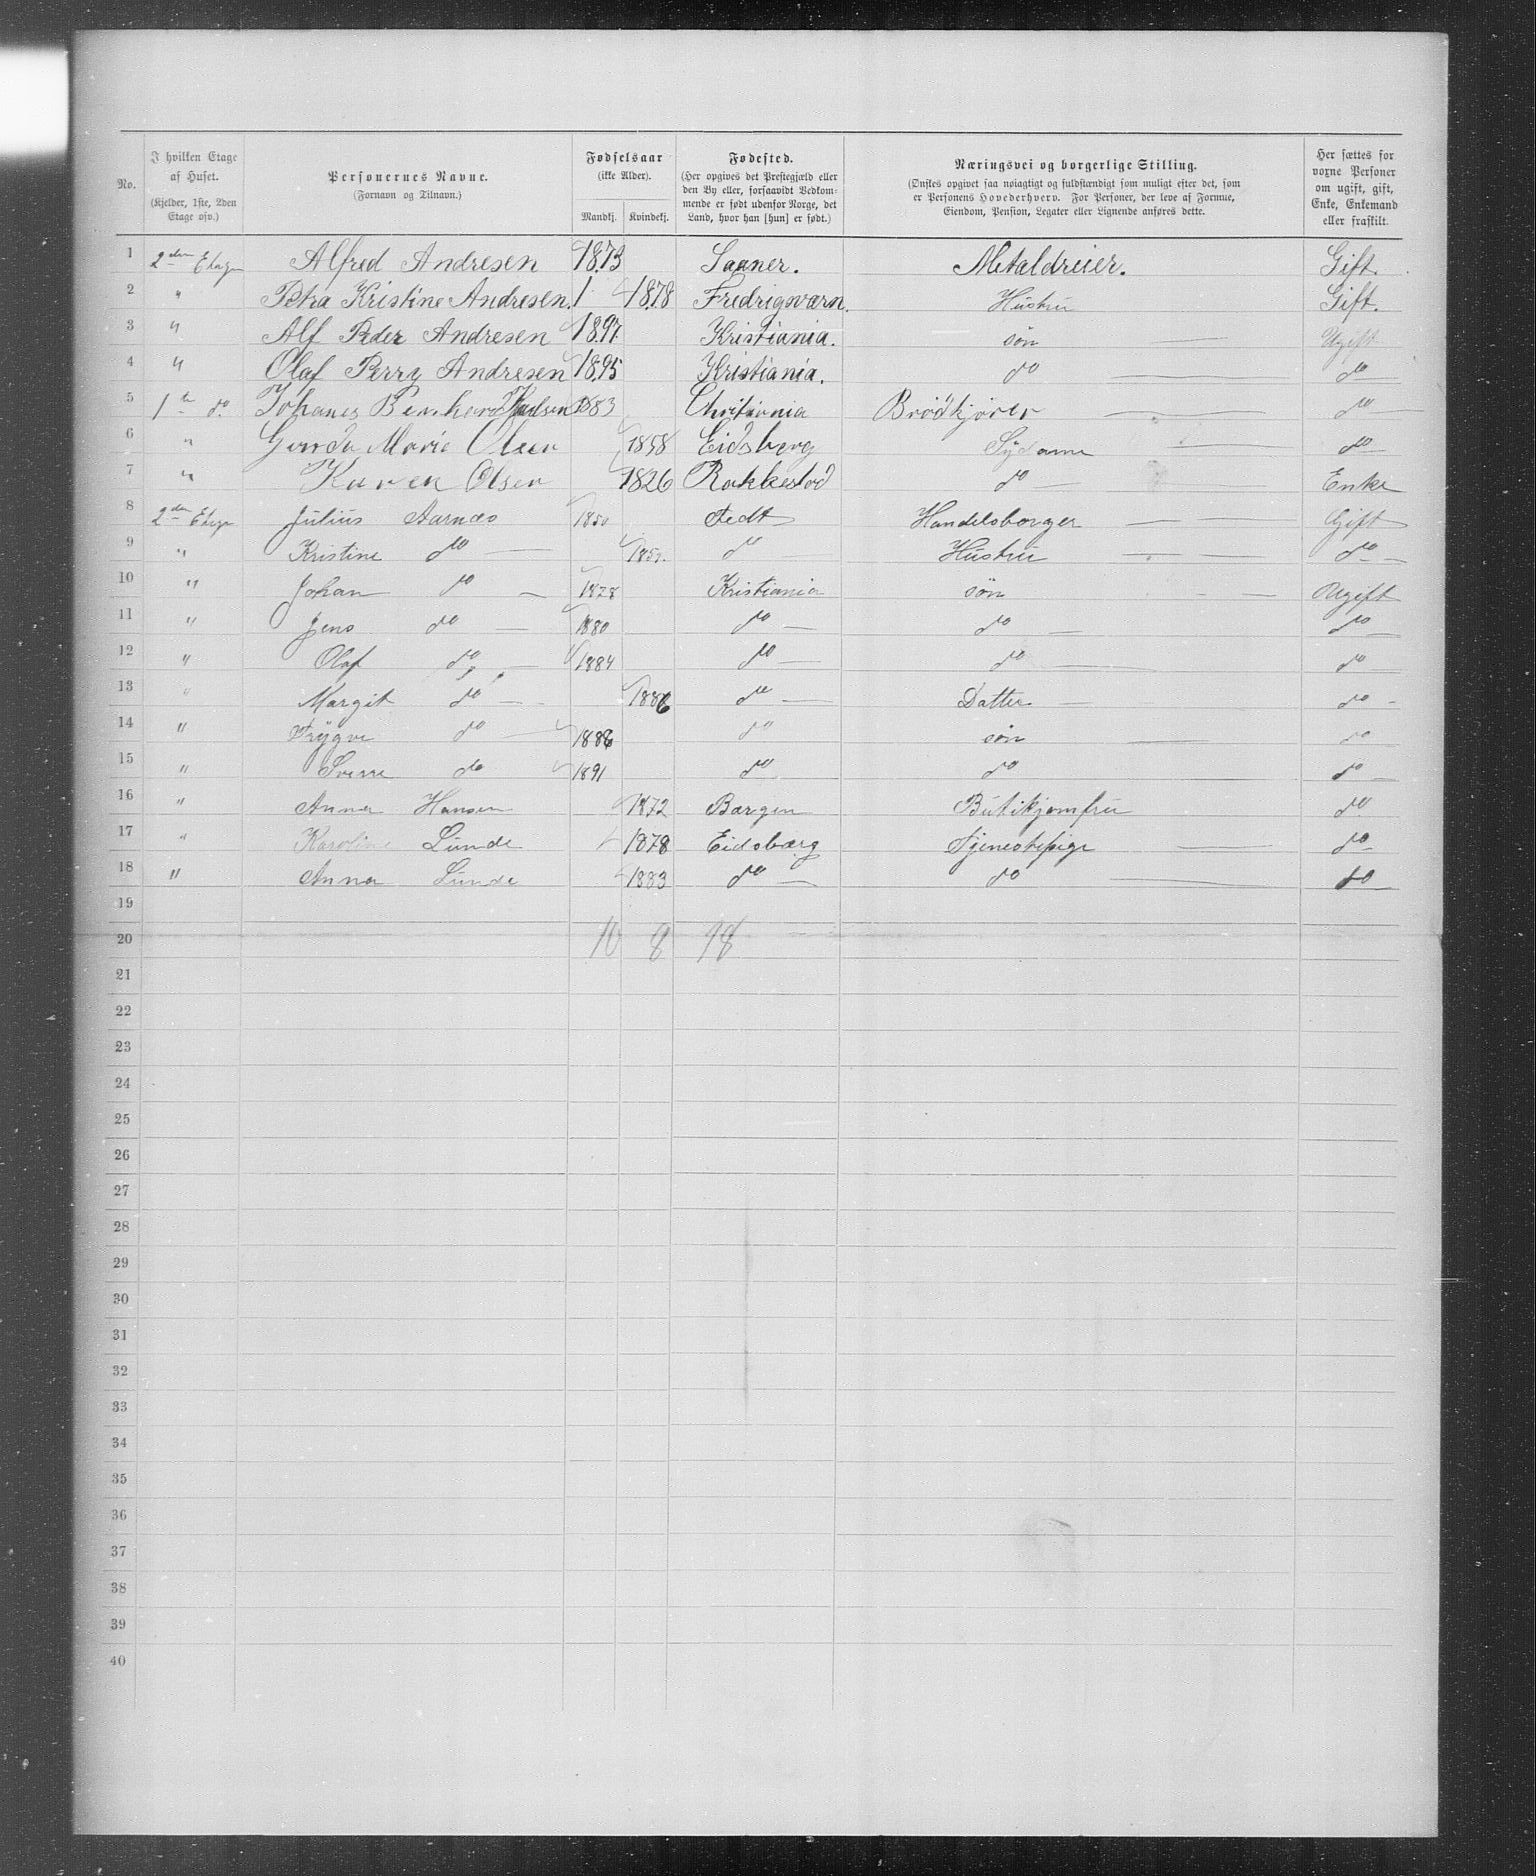 No.
I hvilken Etage af Huset.
(Kjelder, 1ste, 2den Etage osv.)
Personernes Navne.
(Fornavn og Tilnavn.)
Fødselsaar
(ikke Alder).
Mandkj. Kvindekj.
Fødested.
(Her opgives det Præstegjæld eller
den By eller, forsaavidt Vedkom-
mende er født udenfor Norge, det
Land, hvor han [hun] er født.)
Næringsvei og borgerlige Stilling.
(Ønskes opgivet saa nøiagtigt og fuldstændigt som muligt efter det, som
er Personens Hovederhverv. For Personer, der leve af Formue,
Eiendom, Pension, Legater eller Lignende anføres dette.
Her sættes for
voxne Personer
om ugift, gift,
Enke, Enkemand
eller fraskilt.
1 2den Etage Alfred Andresen 1873 Saaner. Metaldreier. Gift.
2 " Petra Kristine Andresen. 1 1878 Fredrigsværn. Hustru Gift.
3 " Alf Peder Andresen 1897. Kristiania. søn Ugift
4 " Olaf Perry Andresen 1895 Kristiania. do do
5 1te do. Johanes Bernhard 1883 Christiania Brödkjörer do
6 " Marie Olsen 1858 Eidsberg Sydame do
7 " Karen Olsen 1826 Rakkestad do Enke
8 2den Etage Julius Aarnæs 1850 Handelsborger Gift
9 " Kristine do do Hustru do
10 " Johan do 1878 Kristiania søn Ugift
11 " Jens do 1880 do do do
12 " Olaf do 1884 do do do
13 " Margit do 1886 do Datter do
14 " Trygve do 1888 do søn do
15 " Sverre do 1891 do do do
16 " Anna Hansen 1872 Bergen Butikjomfru do
17 " Karoline Lunde 1878 Eidsbærg Tjenestepige do
18 " Anna Lunde 1883 do do do
19
20 10 8 18
21
22
23
24
25
26
27
28
29
30
31
32
33
34
35
36
37
38
39
40